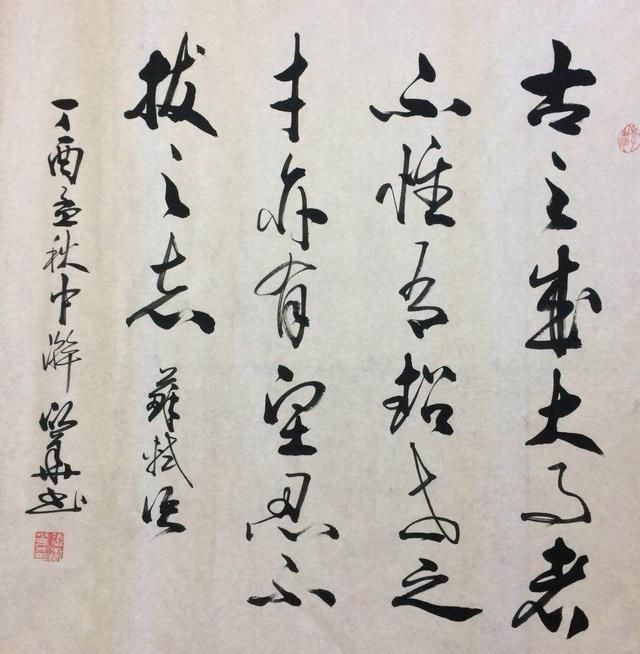 古之成大事者
不惟有超世之
才亦有坚忍不
拔之志 蘇軾语
丁酉孟秋中澣 華书